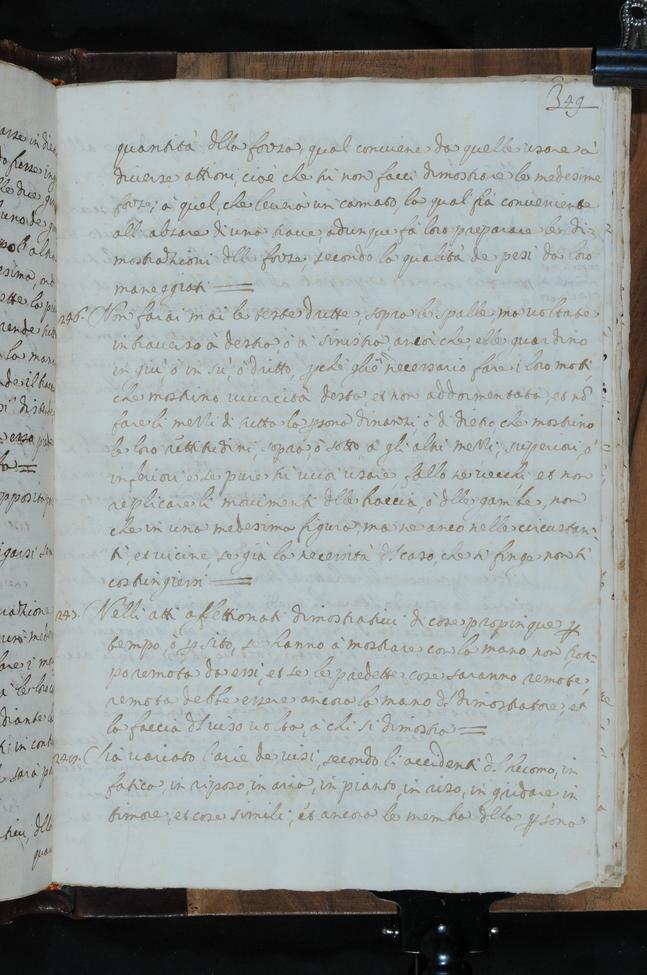 349
quantità dlla forza, qual conviene da quelle usare à
diverse attioni, cioè che tù non facci dimostrare le medesime
forze, à quel, che leuva un camato, la qual sia conveniente
all' alzare di una trave, adunque fà loro preparare le di-
mostrazioni dlle forze, secondo la qualità de pesi da loro
maneggiati
246. Non farai mai le teste dritte, sopra le spalle ma voltate
in traverso à destra, ò à sinistra ancor che elle guardino
in giù, ò in sù, ò dritto, pchè gliè necessario fare i loro moti,
che mostrino vivacità desta, et non addormentata, et nō
fare li mezzi di tutta la psona dinanzi, ò di dietro che mostrino
le loro rettitudini, sopra, ò sotto à gli altri mezzi, superiori, ò
inferiori e se pure tù vuoi usare, fallo ne vecchi et non
replicare li movimenti dlle braccia, ò dlle gambe, non
che in una medesima figura, ma ne anco nelle circustan-
ti, et vicine, se già la necessità dl caso, che si finge non ti
costringiessi
247. Nelli atti affettionati dimostrativi di cose propinque p
tempo, ò p sito, s' hanno à mostrare con la mano non trop-
po remota da essi, et se le predette cose saranno remote,
remota debbe essere ancora la mano dl dimostratore, et
la faccia dl viso volta, à chi si dimostra
Sia variato l'arie de visi, secondo li accidenti dl huomo, in
fatica, in riposo, in aria, in pianto, in riso, in gridare in
timore, et cose simili, et ancora le membra dlla psona